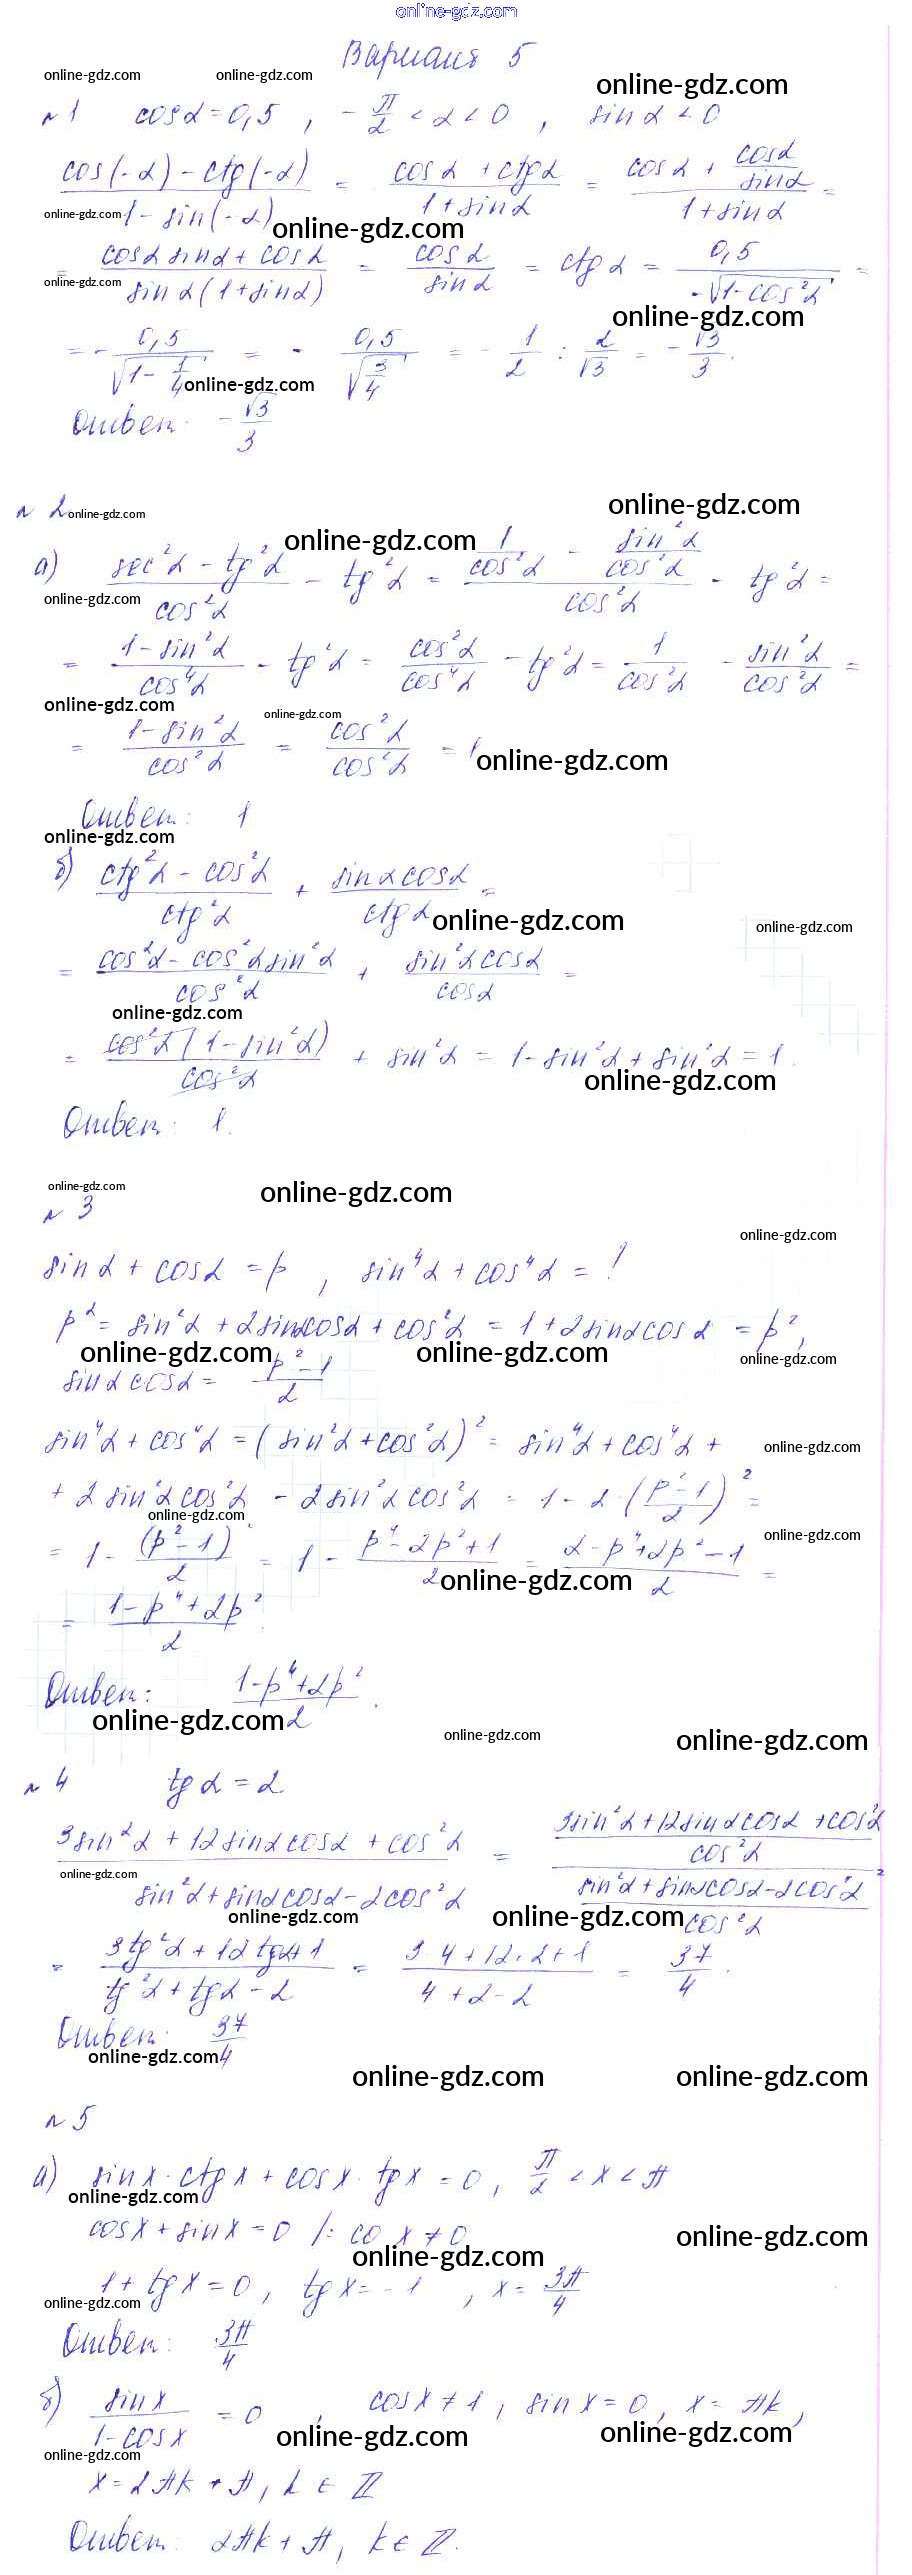 online-gdz.com
Вариант 5
online-gdz.com online-gdz.com online-gdz.com
№1 cos α = 0,5 , -π/2 < α < 0 , sin α < 0
(cos(-α) - ctg(-α))/(1 - sin(-α)) = (cos α + ctg α)/(1 + sin α) = (cos α + cos α/sin α)/(1 + sin α) =
online-gdz.com online-gdz.com
= (cos α sin α + cos α)/(sin α(1 + sin α)) = cos α/sin α = ctg α = 0,5/(-√(1 - cos²α)) =
online-gdz.com online-gdz.com
= - 0,5/√(1 - 1/4) = - 0,5/√(3/4) = - 1/2 : 2/√3 = - √3/3.
online-gdz.com
Ответ: -√3/3
№ 2
online-gdz.com online-gdz.com
online-gdz.com
а) (sec²α - tg²α)/cos²α - tg²α = (1/cos²α - sin²α/cos²α)/cos²α - tg²α =
online-gdz.com
= (1 - sin²α)/cos⁴α - tg²α = cos²α/cos⁴α - tg²α = 1/cos²α - sin²α/cos²α =
online-gdz.com online-gdz.com
= (1 - sin²α)/cos²α = cos²α/cos²α = 1
online-gdz.com
Ответ: 1
online-gdz.com
б) (ctg²α - cos²α)/ctg²α + sin α cos α/ctg α =
online-gdz.com online-gdz.com
= (cos²α - cos²α sin²α)/cos²α + sin²α cos α/cos α =
online-gdz.com
= cos²α(1 - sin²α)/cos²α + sin²α = 1 - sin²α + sin²α = 1.
online-gdz.com
Ответ: 1.
online-gdz.com online-gdz.com
№ 3
online-gdz.com
sin α + cos α = p , sin⁴α + cos⁴α = ?
p² = sin²α + 2sinαcosα + cos²α = 1 + 2sinαcosα = p²,
online-gdz.com online-gdz.com online-gdz.com
sin α cos α = (p² - 1)/2
sin⁴α + cos⁴α = (sin²α + cos²α)² = sin⁴α + cos⁴α +
online-gdz.com
+ 2 sin²α cos²α - 2sin²α cos²α = 1 - 2 · ((p² - 1)/2)² =
online-gdz.com online-gdz.com
= 1 - (p² - 1)²/2 = 1 - (p⁴ - 2p² + 1)/2 = (2 - p⁴ + 2p² - 1)/2 =
online-gdz.com
= (1 - p⁴ + 2p²)/2.
Ответ: (1 - p⁴ + 2p²)/2.
online-gdz.com online-gdz.com online-gdz.com
№ 4 tg α = 2
(3sin²α + 12sinαcosα + cos²α)/(sin²α + sinαcosα - 2cos²α) = ((3sin²α + 12sinαcosα + cos²α)/cos²α)/((sin²α + sinαcosα - 2cos²α)/cos²α)
online-gdz.com
online-gdz.com online-gdz.com
= (3tg²α + 12tgα + 1)/(tg²α + tgα - 2) = (3·4 + 12·2 + 1)/(4 + 2 - 2) = 37/4.
Ответ: 37/4
online-gdz.com online-gdz.com online-gdz.com
№ 5
а) sin x · ctg x + cos x · tg x = 0, π/2 < x < π
online-gdz.com
cos x + sin x = 0 /: co x ≠ 0
online-gdz.com online-gdz.com
1 + tg x = 0, tg x = -1 , x = 3π/4
online-gdz.com
Ответ: 3π/4
б) sin x/(1 - cos x) = 0 , cos x ≠ 1, sin x = 0, x = πk,
online-gdz.com online-gdz.com
online-gdz.com
x = 2πk + π, k ∈ Z
Ответ: 2πk + π, k ∈ Z.